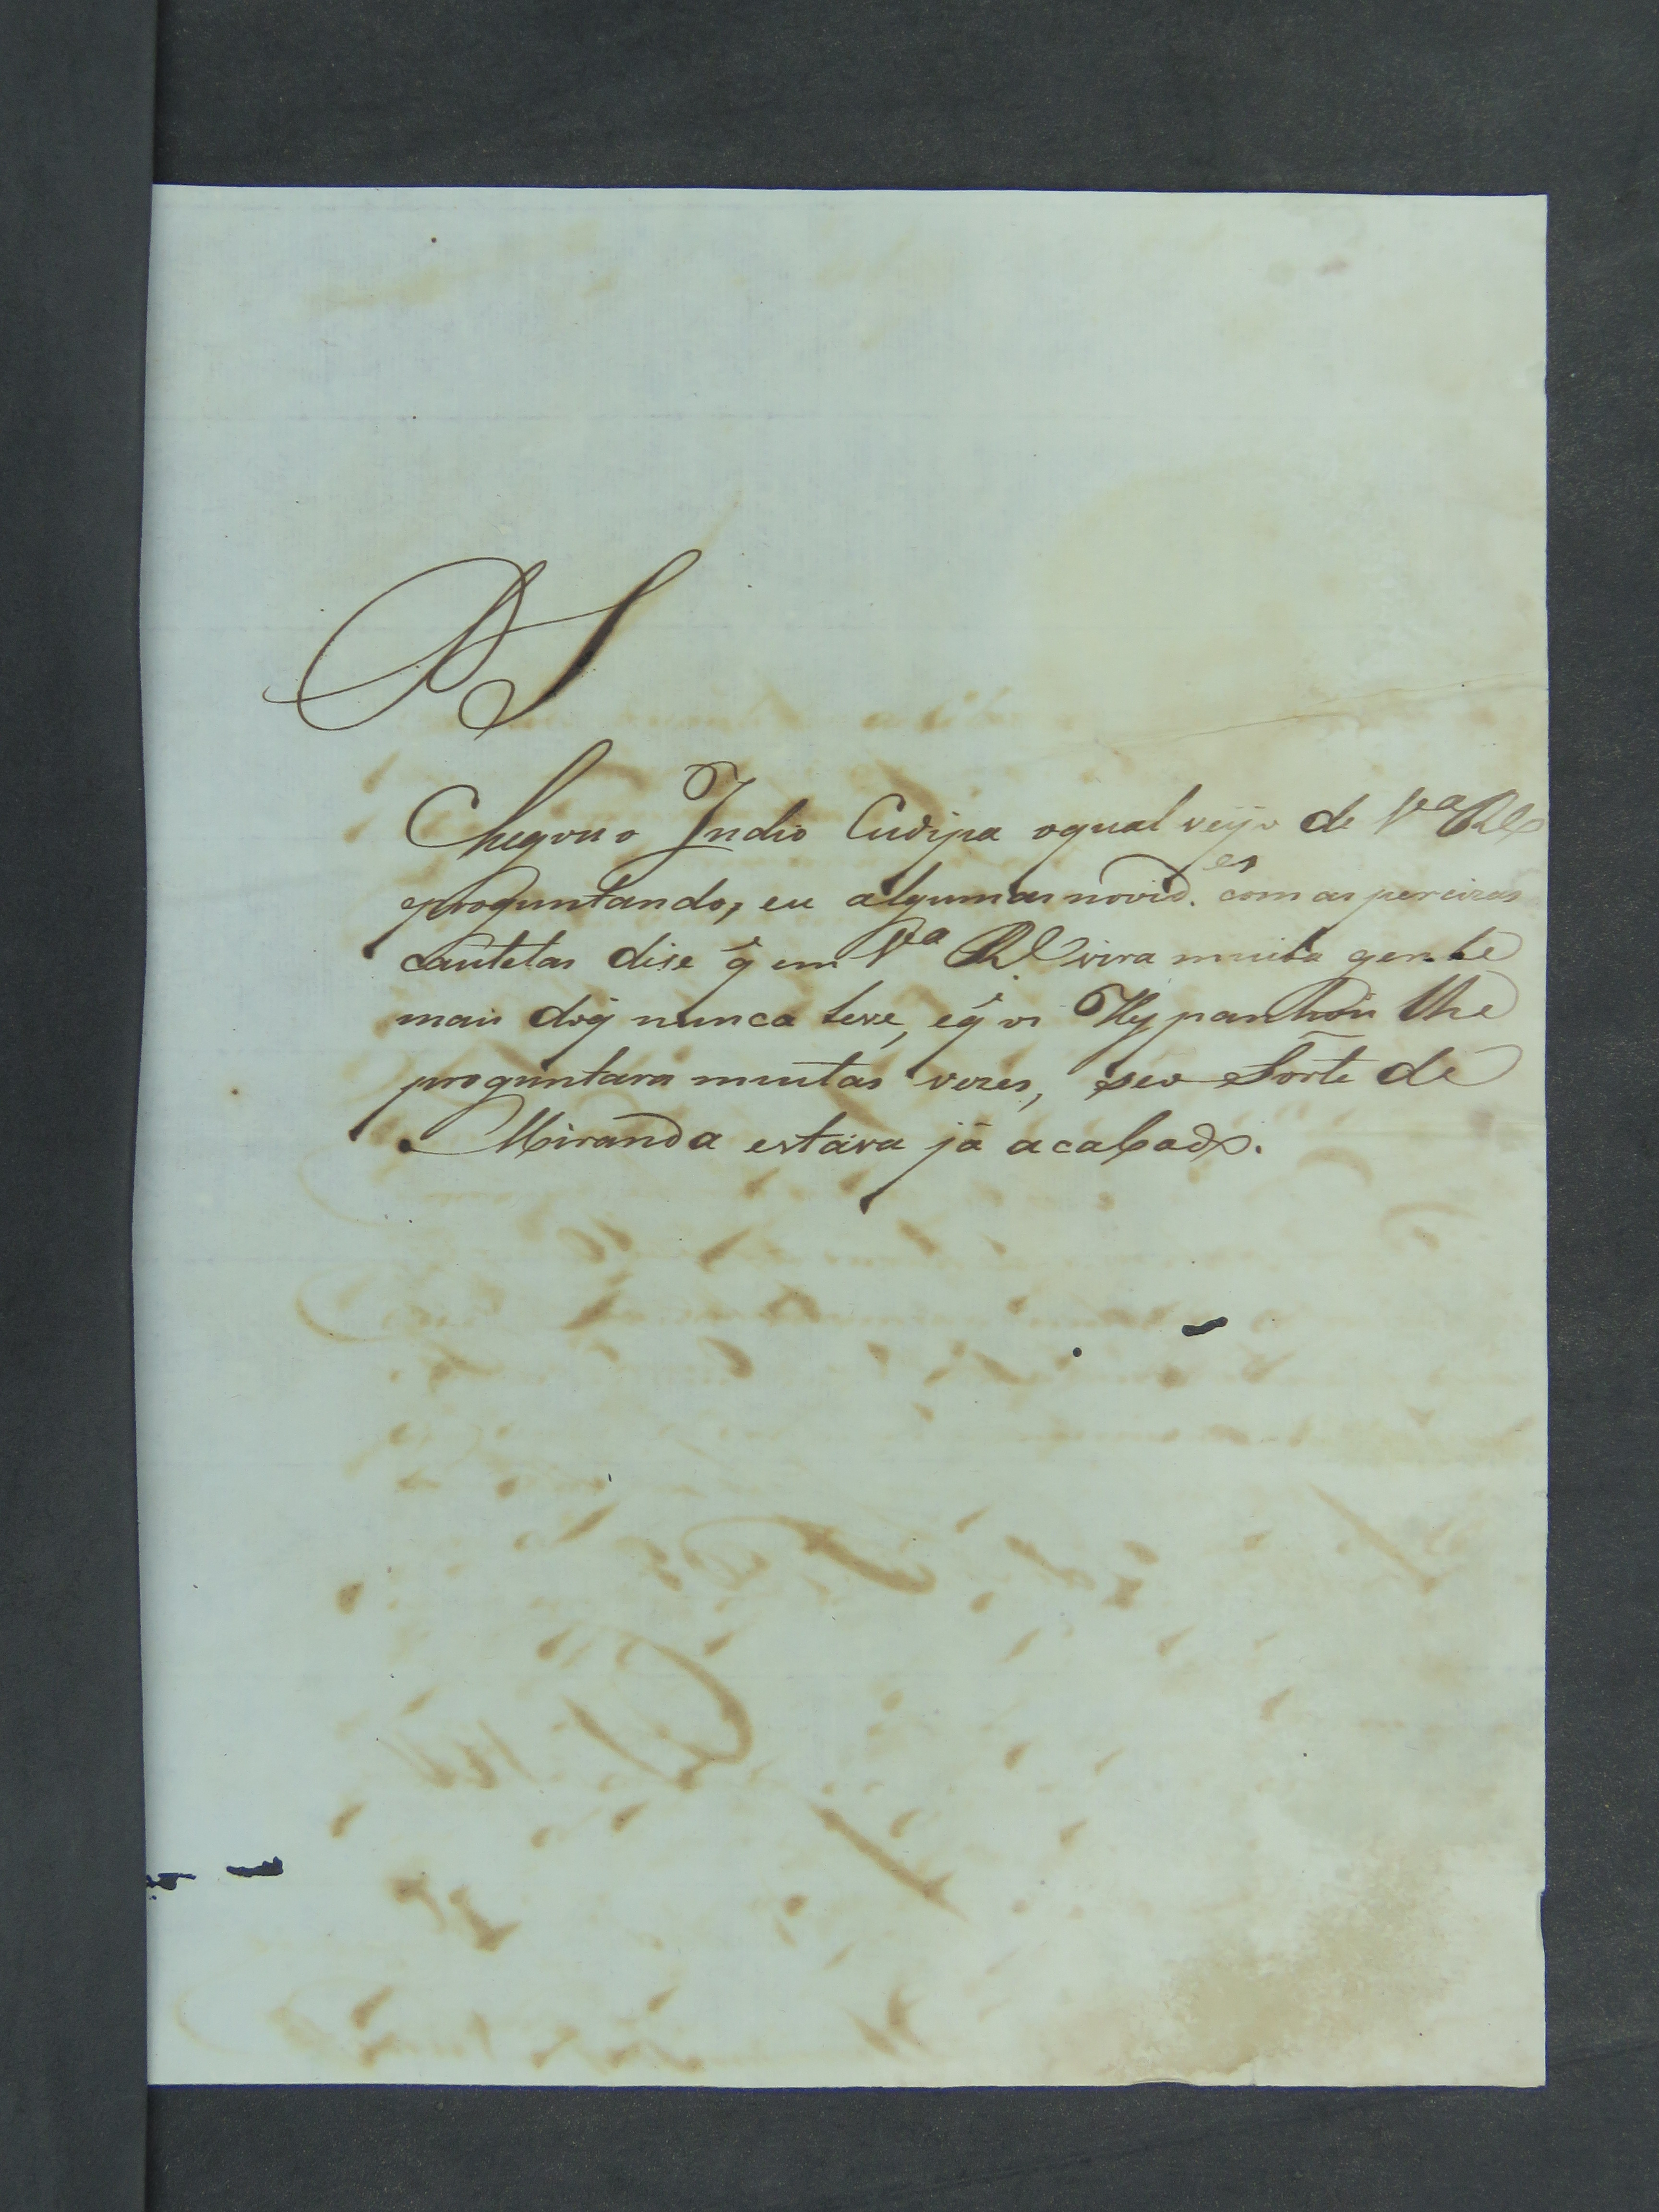 PS
Chegou o Indio Cudipa oqual veijo de Vª Rl
proguntando, eu algumas novid.es com as percizas
cautelas dise q̃ em Vª Rl vira muita gente
mais doq̃ nunca teve, eq̃ os Hypanhois lhe
proguntara muitas vezes, seo Forte de
Miranda estava já acabado.